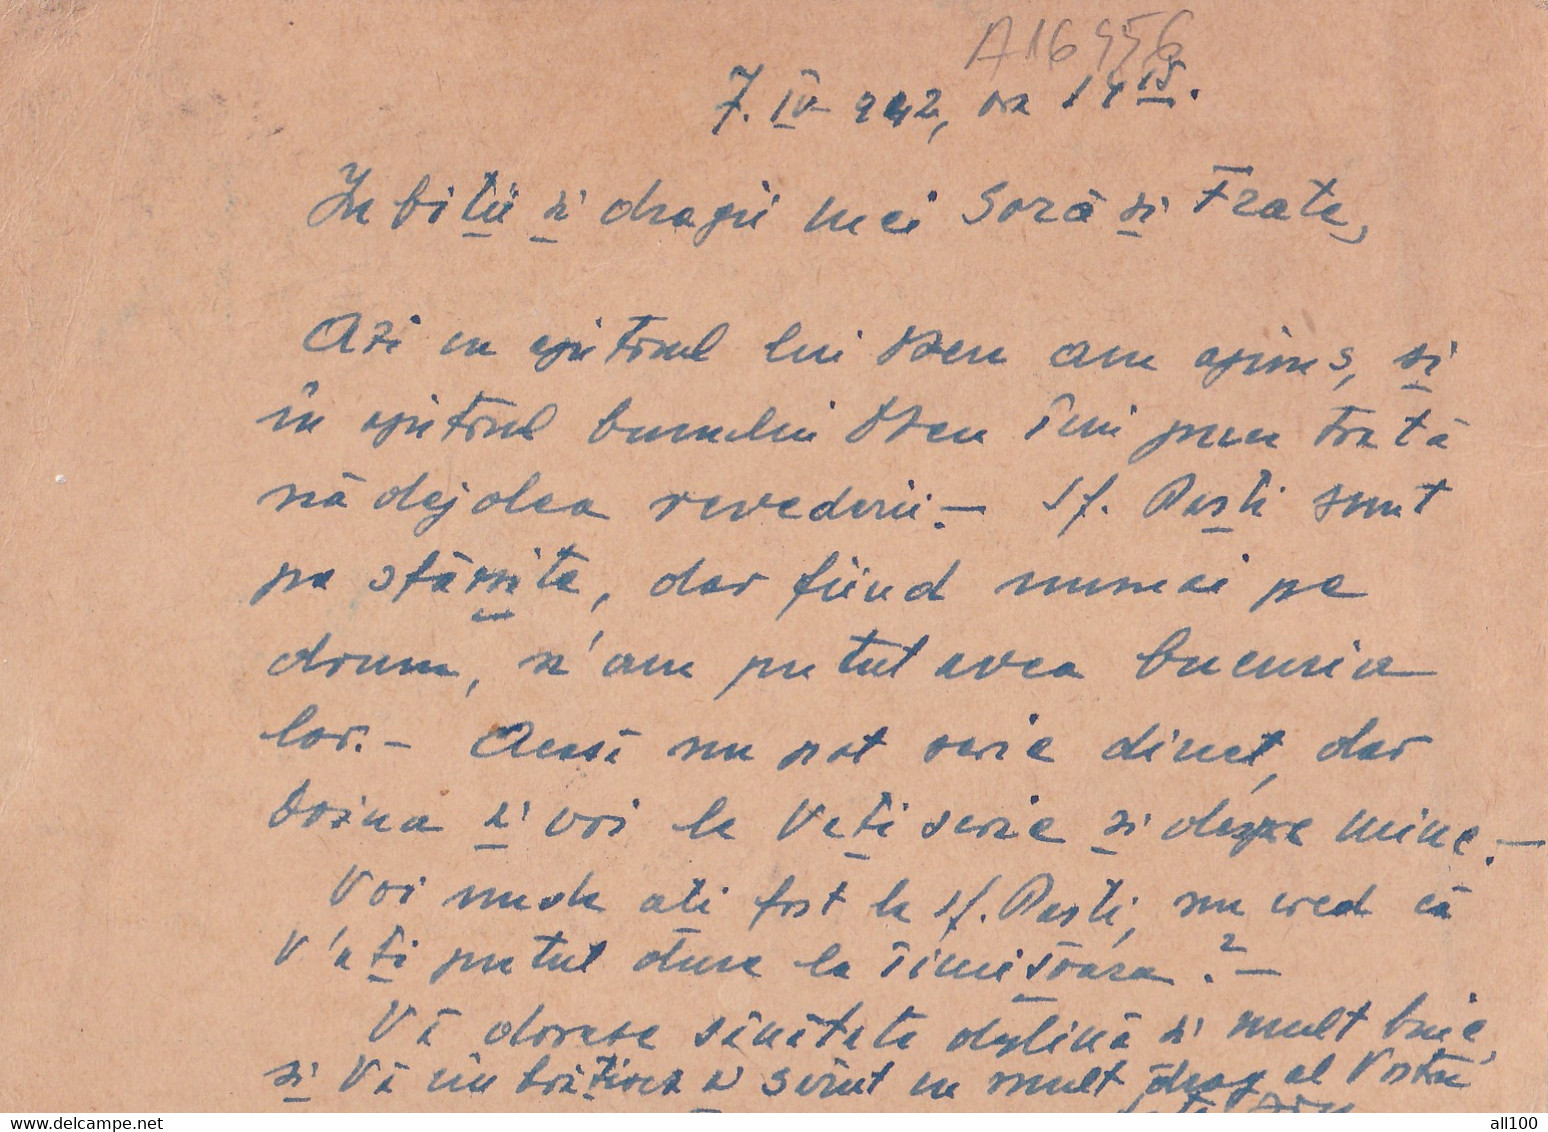 A16456
7. IV 942, ora 14 15.
Iubiții și dragii mei Soră și Frate,
Azi cu ajutorul lui Dzeu am ajuns, și
în ajutorul bunului Dzeu îmi pun toată
nădejdea revederii.— Sf. Paști sunt
pe sfârșite, dar fiind numai pe
drum, n'am putut avea bucuria
lor.— Acasă nu pot scrie direct, dar
Doina și voi le veți scrie și despre mine.—
Voi unde ați fost la Sf. Paști, nu cred că
V'ați putut duce la Timișoara?—
Vă doresc sănătate deplină și mult bine,
și Vă îmbrățișez și sărut cu mult drag al Vostru
delcampe.net
all100